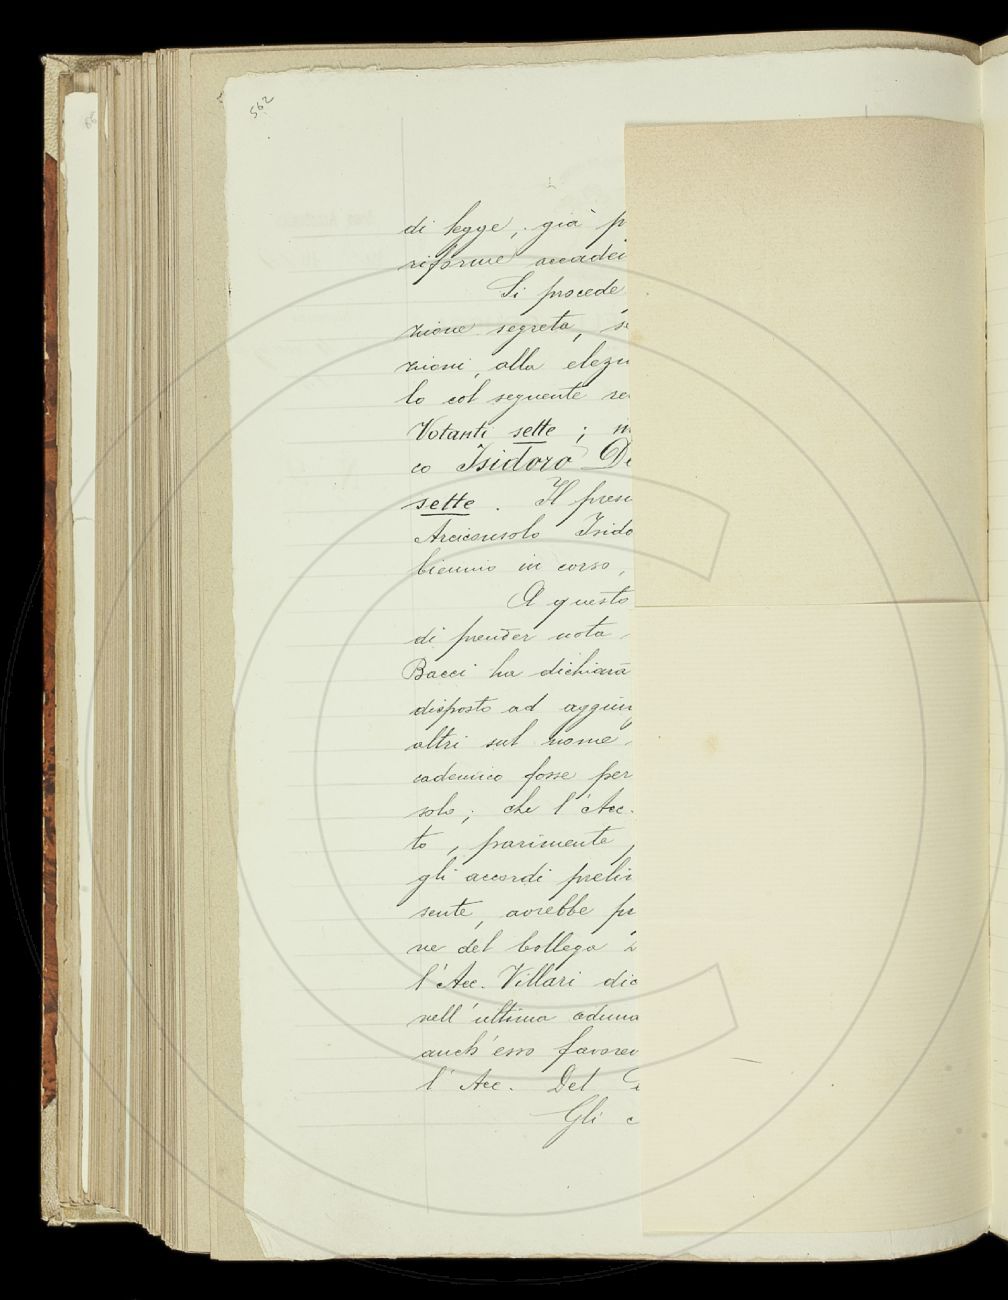 562
di legge, già p
riforme accadei
Si procede
zione segreta, se
zioni, alla elezi
lo col seguente re
Votanti sette; n
co Isidoro De
sette. Il presi
Arciconsolo Isido
biennio in corso,
A questo
di prender nota
Bacci ha dichiara
disposto ad aggiun
altri sul nome
cademico fosse per
solo; che l'Acc.
to, parimente
gli accordi preli
sente, avrebbe pr
ne del Collega
l'Acc. Villari dic
nell'ultima aduna
anch'esso favorev
l'Acc. Del
Gli